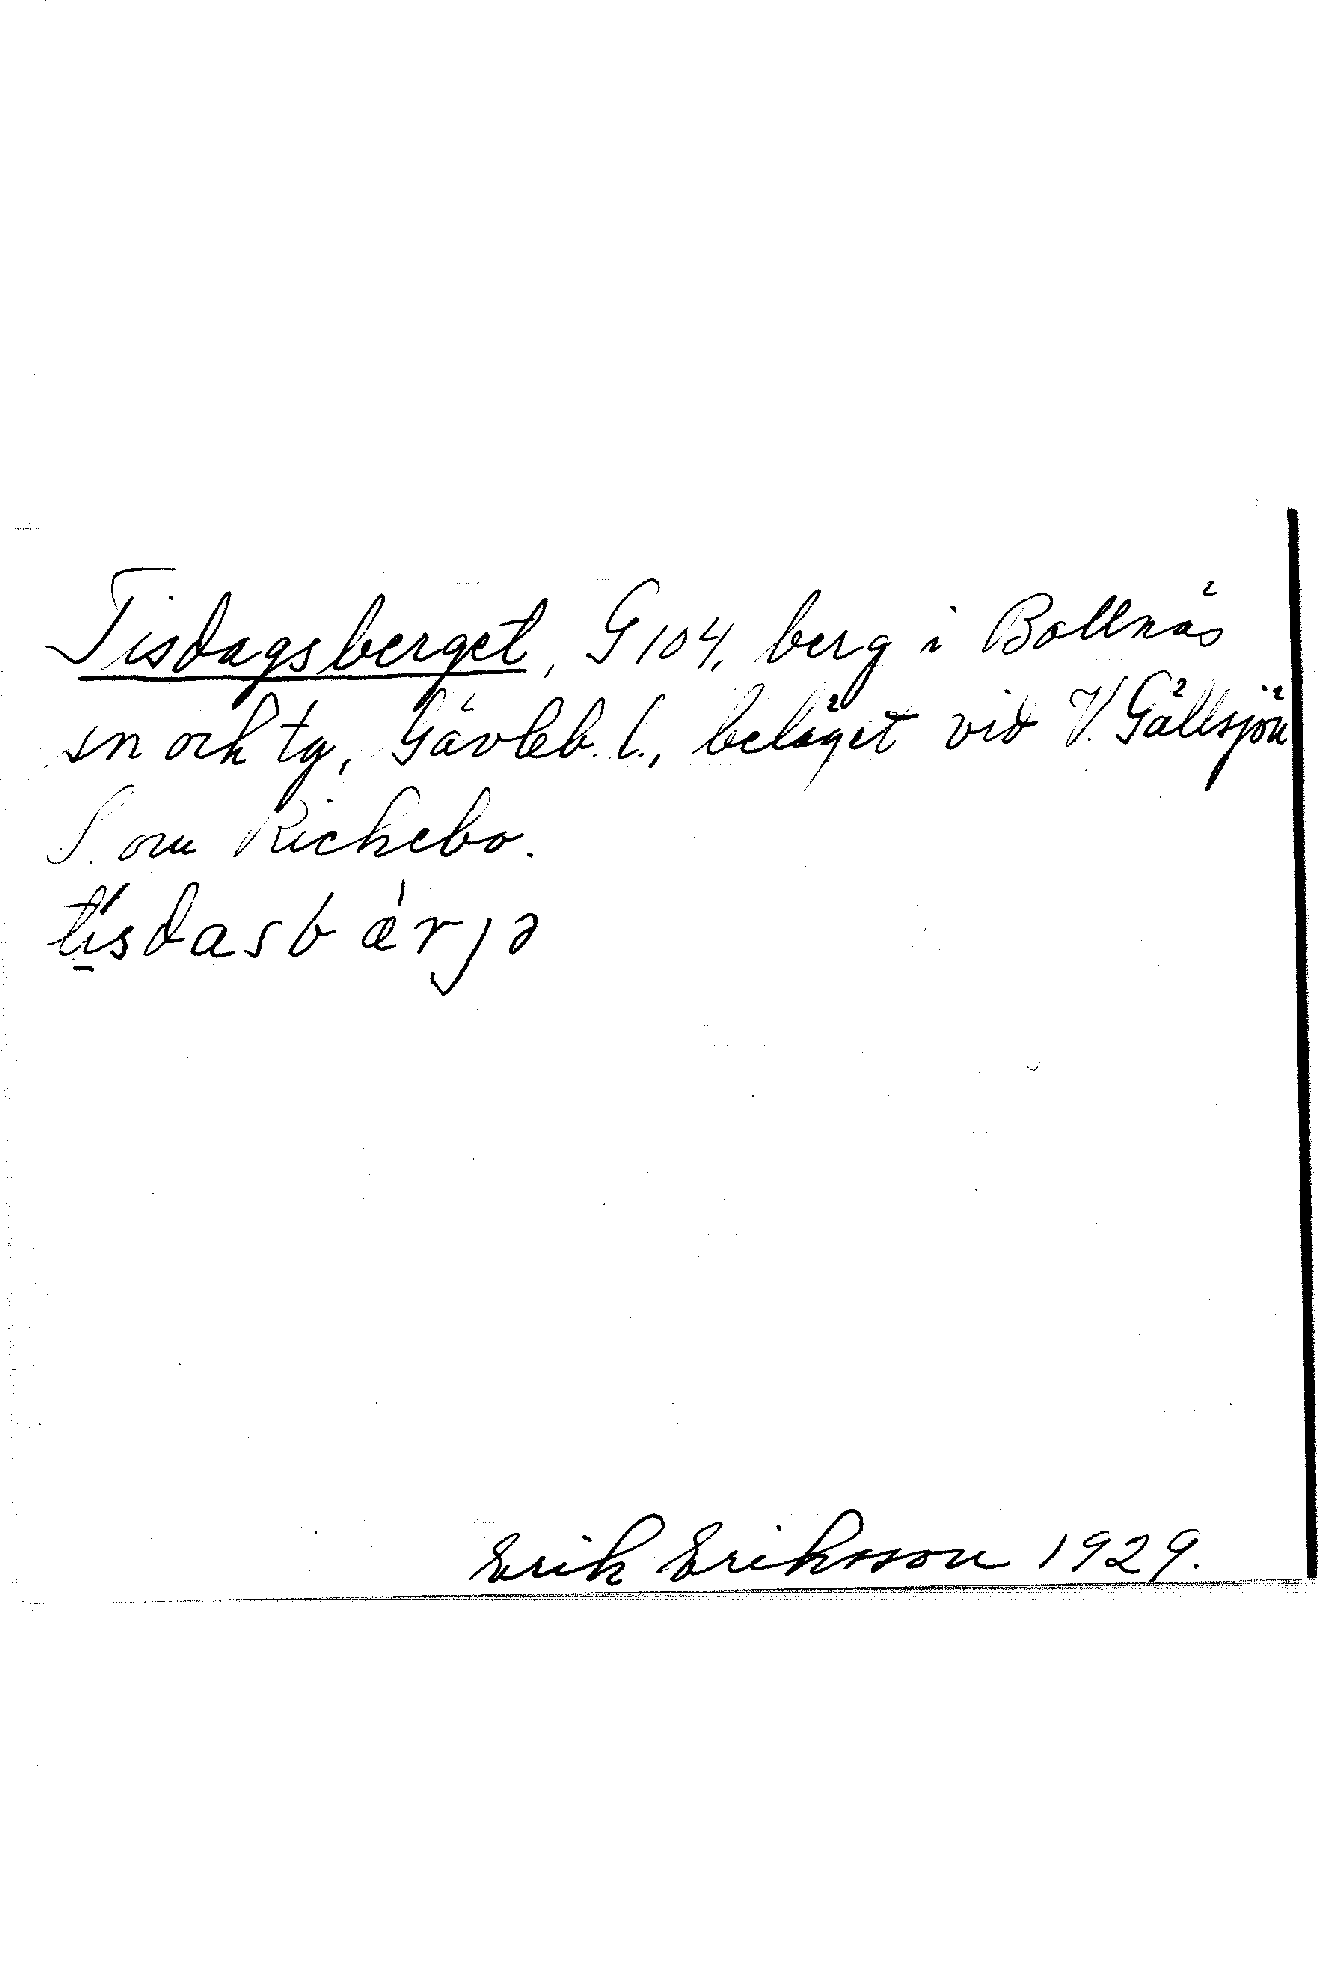 Tisdagsberget, G 104, berg i Bollnäs
sn och tg, Gävleb. l., beläget vid V. Gällsjön
S. om Rickebo.
tí̱sdasbæ̀rjə
Erik Eriksson 1929.